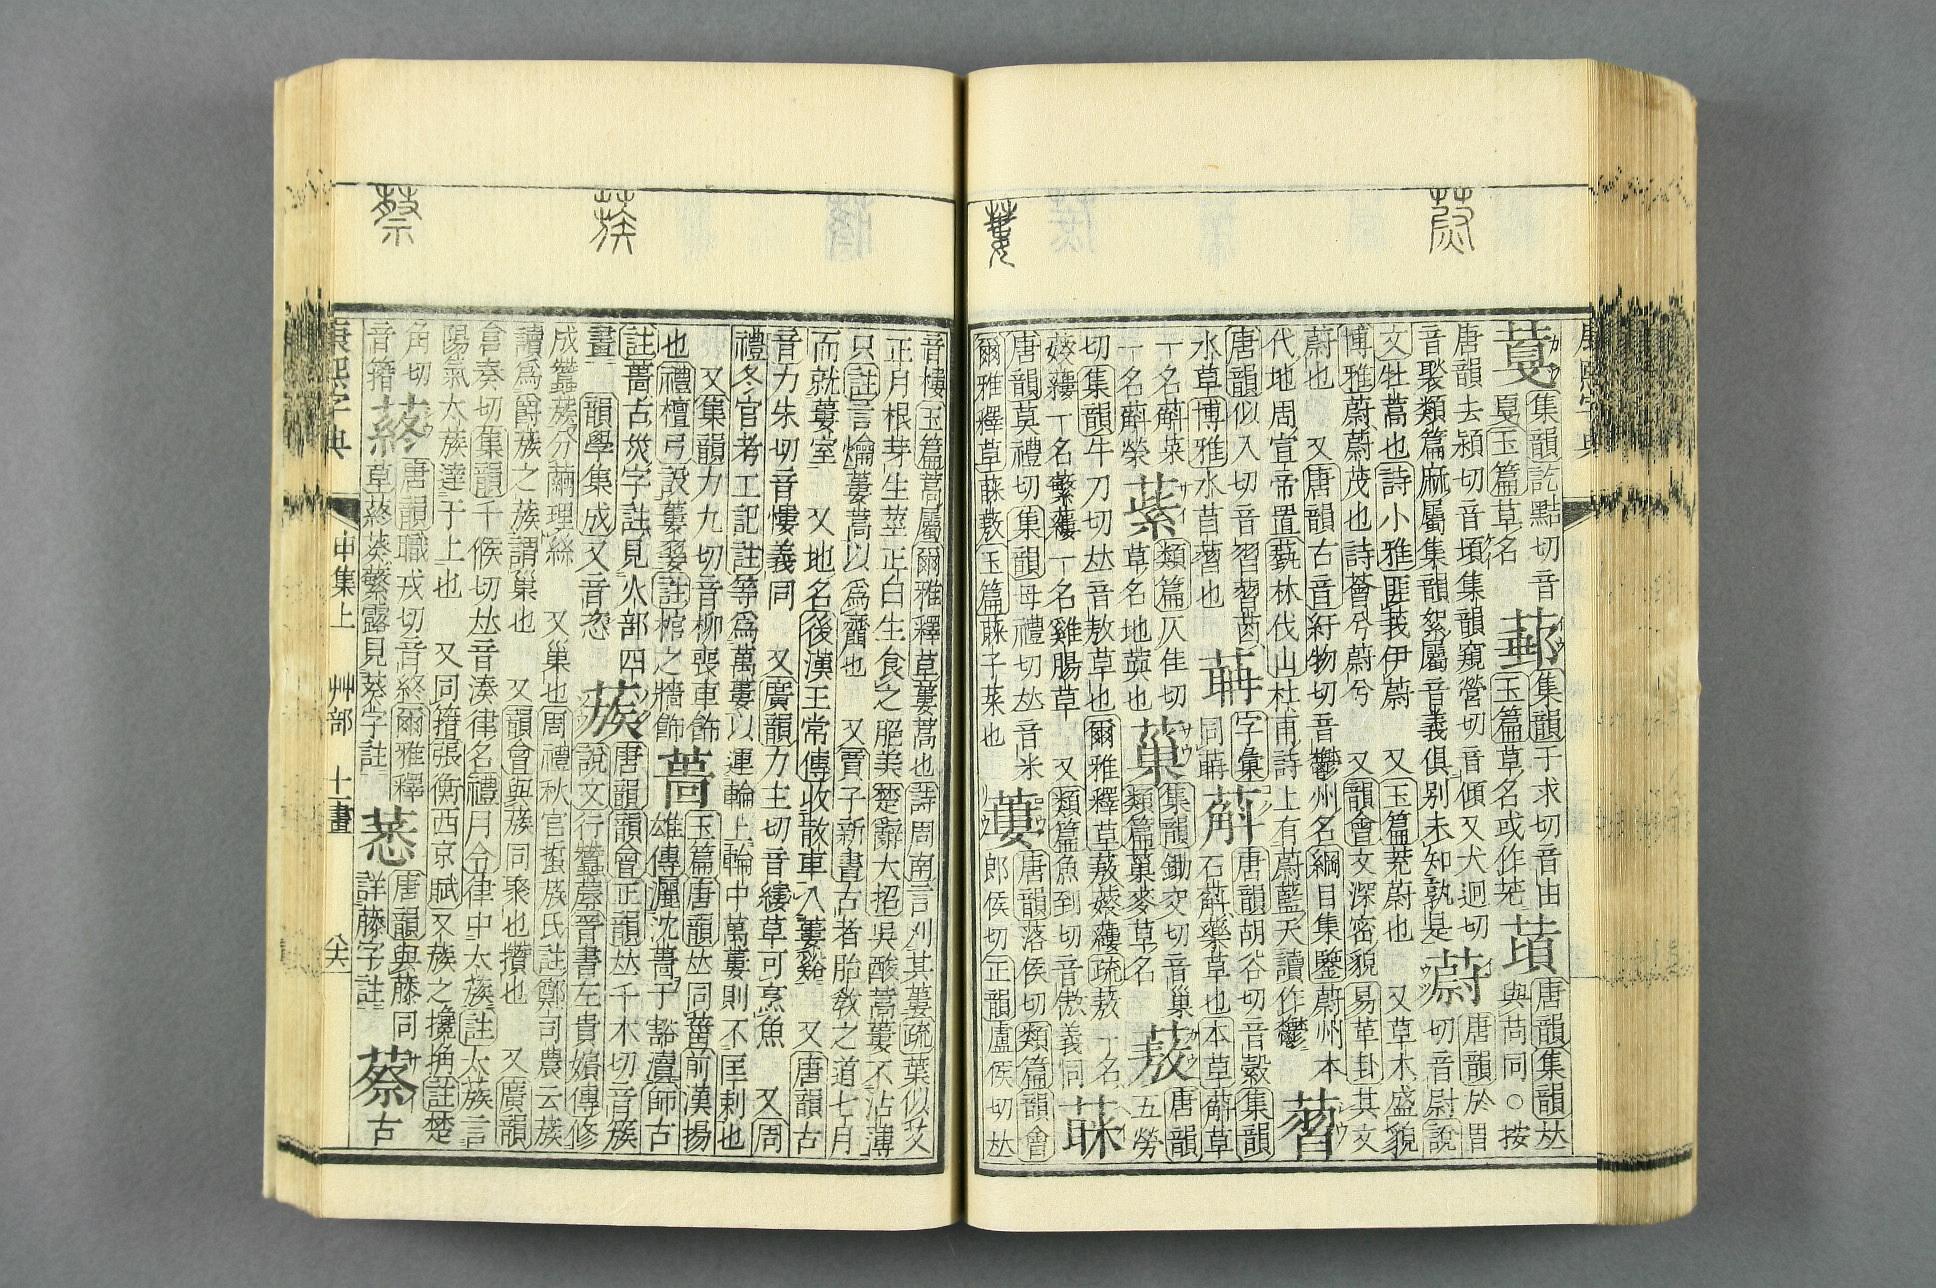 康熙字典
集韻訖黠切音
戛玉篇草名
集韻于求切音由
玉篇草名或作
䔛
唐韻集韻𠀤
與苘同○按
唐韻去潁切音頃集韻窺營切音傾又犬迥切
音褧類篇麻屬集韻絮屬音義俱別未知孰是
蔚
唐韻於胃
切音尉說
文牡蒿也詩小雅匪莪伊蔚 又玉篇茺蔚也 又草木盛貌
博雅蔚蔚茂也詩薈兮蔚兮 又韻會文深密貌易革卦其文
蔚也 又唐韻古音紆物切音鬱州名綱目集鑒蔚州本
代地周宣帝置藝林伐山杜甫詩上有蔚藍天讀作鬱
唐韻似入切音習習茵
水草博雅水苜也
字彙
同
蔛
唐韻胡谷切音縠集韻
石蔛藥草也本草蔛草
一名蔛菜
一名蔛榮
類篇仄佳切
草名地蓂也
集韻鋤交切音巢
類篇麥草名
蔜
唐韻
五勞
切集韻牛刀切𠀤音敖草也爾雅釋草蔜䕅䕡疏蔜一名
䕅䕡一名繁䕡一名雞腸草 又類篇魚到切音傲義同
唐韻莫禮切集韻母禮切𠀤音米
爾雅釋草蔜玉篇子菜也
蔞
唐韻落侯切類篇韻會
郎侯切正韻盧侯切𠀤
音樓玉篇蒿屬爾雅釋草蔞蒿也詩周南言刈其蔞疏葉似艾
正月根芽生莖正白生食之脆美楚辭大招吳酸蒿蔞不沾薄
只註言爚蔞蒿以爲虀也 又賈子新書古者胎敎之道七月
而就蔞室 又地名後漢王常傳收散車八蔞谿 又唐韻古
音力朱切音慺義同 又廣韻力主切音縷草可烹魚 又周
禮冬官考工記註等爲萬蔞以運輪上輪中萬蔞則不匡刺也
又集韻力九切音柳喪車飾
也禮檀弓設蔞翣註棺之牆飾
蔏
玉篇唐韻𠀤同葘前漢揚
雄傳灑沈蔏于豁瀆師古
註蔏古災字註見火部四
畫 韻學集成又音恣
蔟
唐韻韻會正韻𠀤千木切音蔟
說文行蠶蓐晉書左貴嬪傳修
成蠶蔟分繭理絲 又巢也周禮秋官硩蔟氏註鄭司農云蔟
讀爲爵蔟之蔟謂巢也 又韻會與簇同聚也攢也 又廣韻
倉奏切集韻千候切𠀤音湊律名禮月令律中大蔟註太蔟言
陽氣太蔟達于上也 又同籍張衡西京賦又蔟之攙捔註楚
角切
音籍
蔠
唐韻職戎切音終爾雅釋
草蔠葵蘩露見葵字註
唐韻與藤同
詳藤字註
蔡
古
康熙字典
申集上 艸部 十一畫